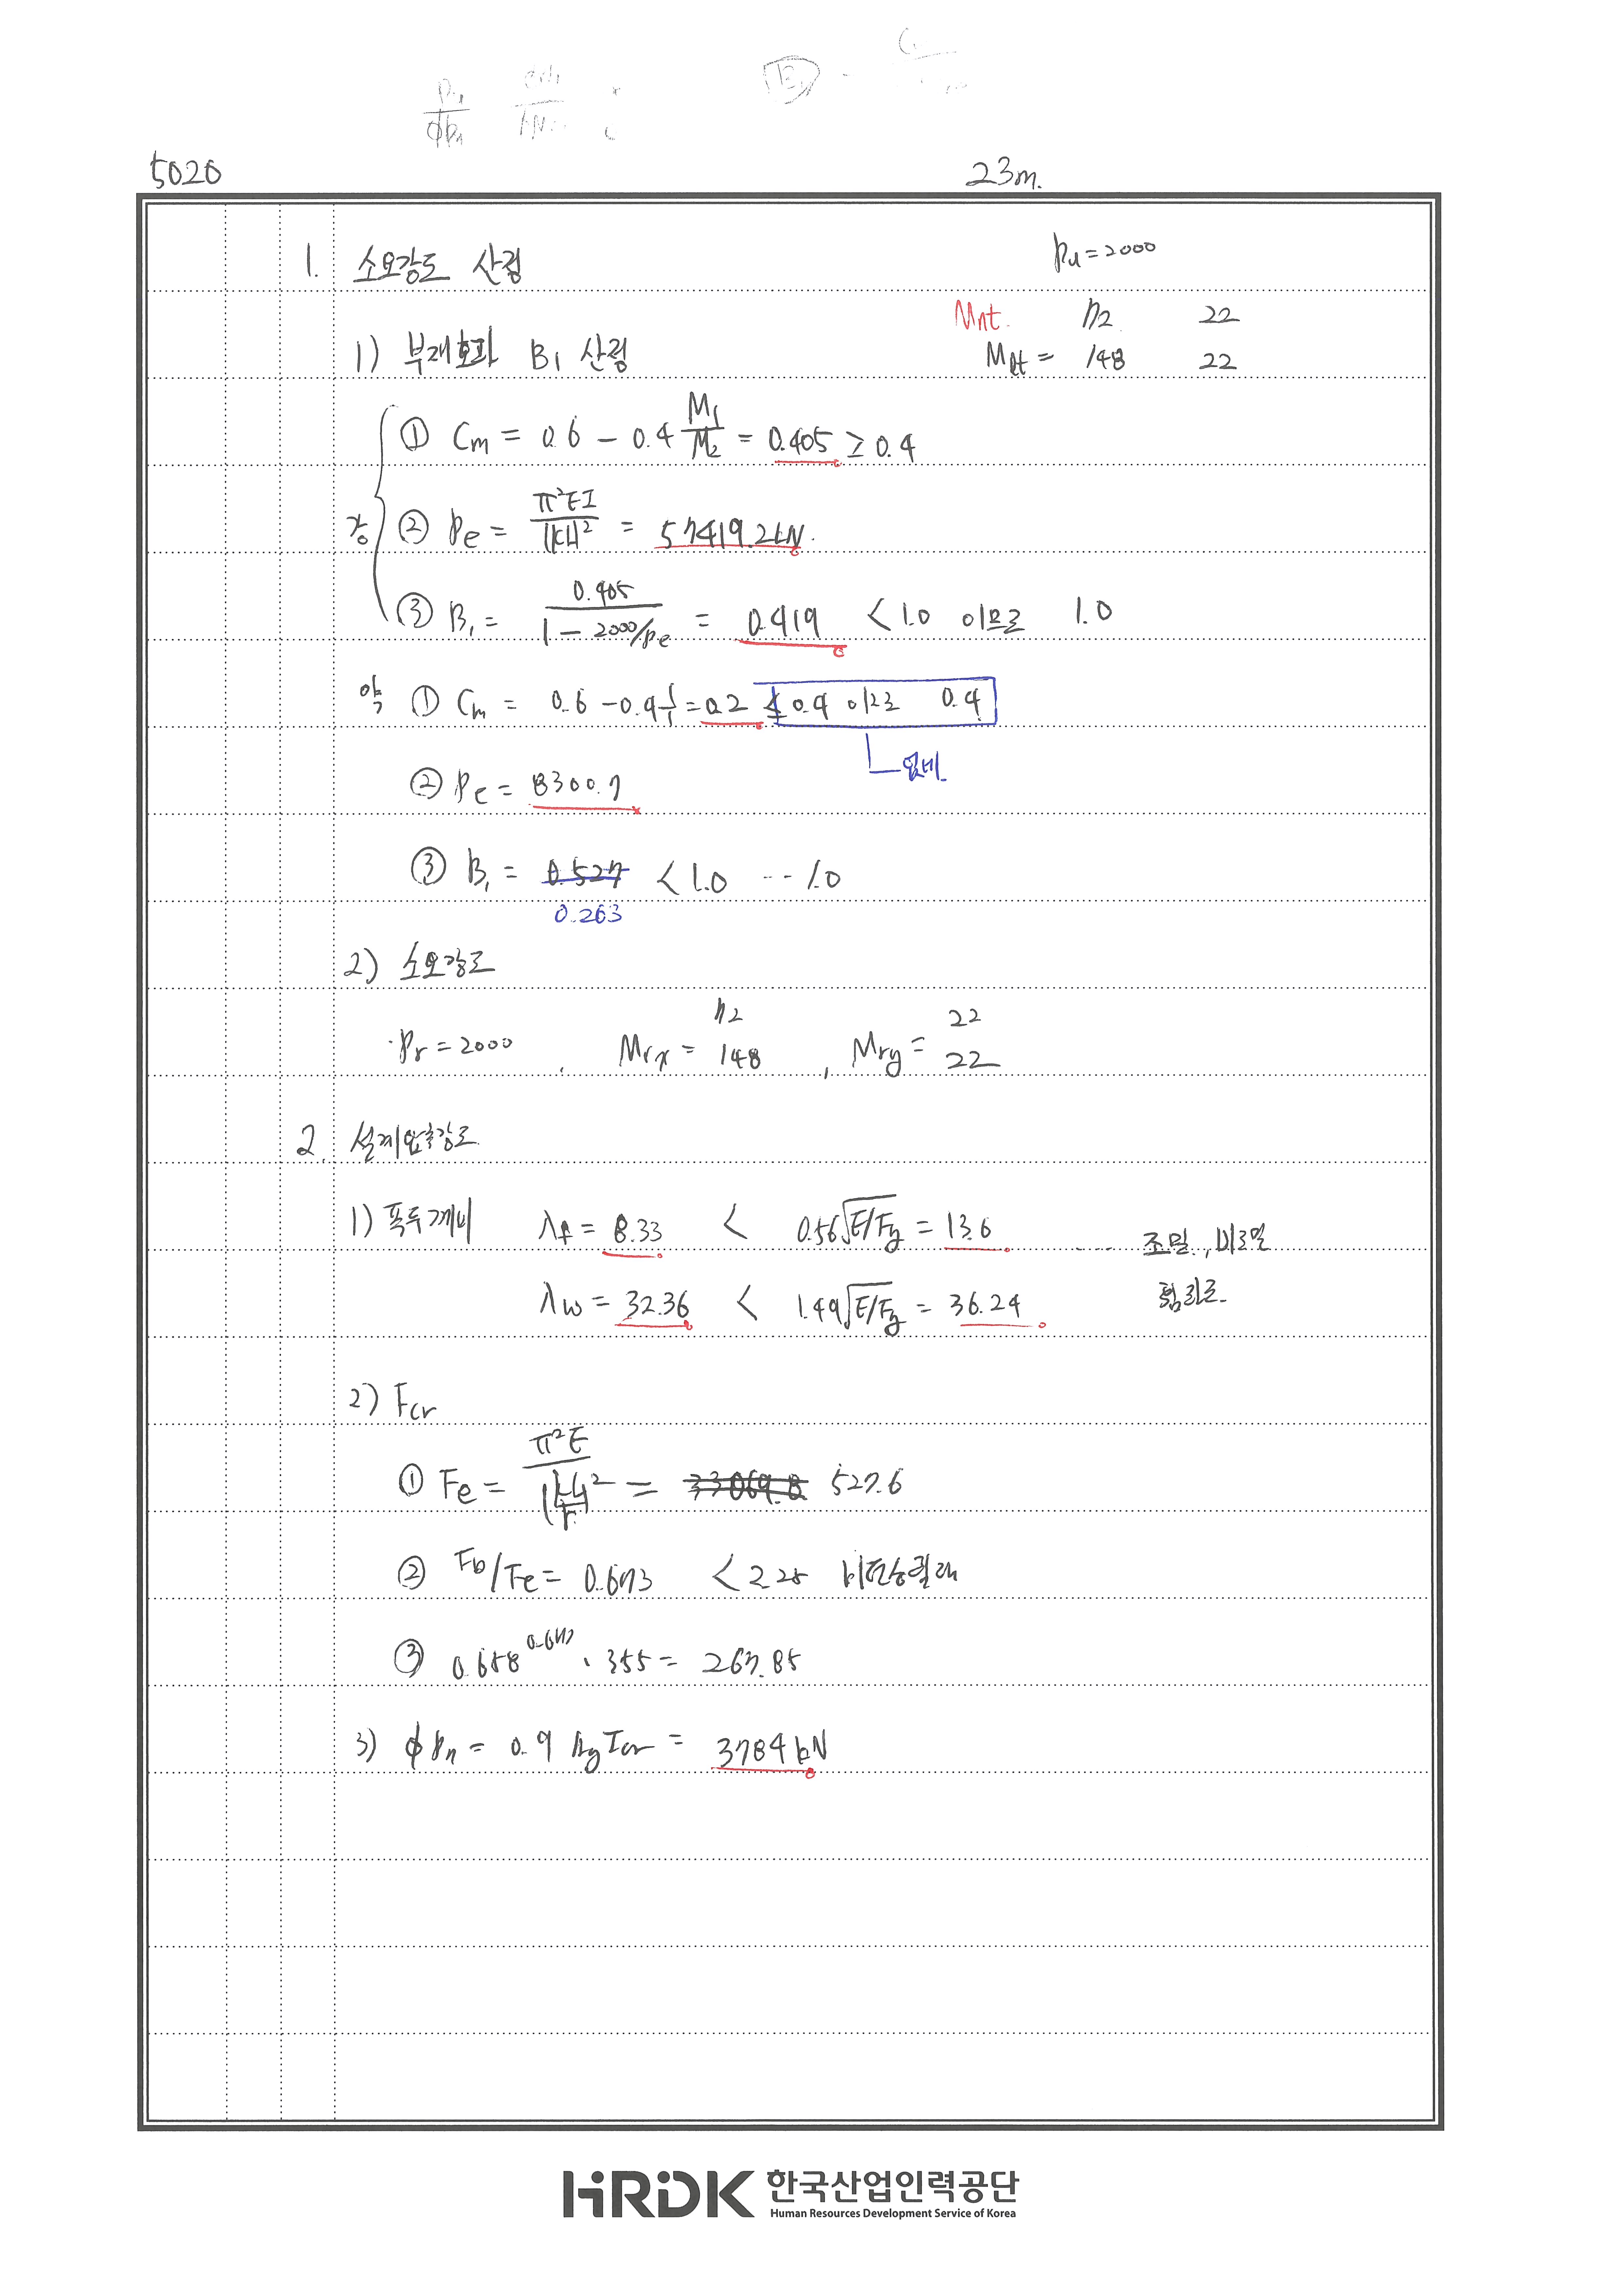 5020 23m.
1. 소요강도 산정 Pu = 2000
Mnt. 72 22
1) 부재효과 B1 산정 Mlt = 148 22
① Cm = 0.6 - 0.4 M1/M2 = 0.405 ≥ 0.4
강 ② Pe = π²EI/(kl)² = 57419.2kN.
③ B1 = 0.405/(1 - 2000/Pe) = 0.419 < 1.0 이므로 1.0
약 ① Cm = 0.6 - 0.4 1/1 = 0.2 ≤ 0.4 이므로 0.4
없네.
② Pe = 8300.7
③ B1 = 0.527 < 1.0 -- 1.0
0.263
2) 소요강도
72 22
· Pr = 2000 , Mrx = 148 , Mry = 22
2. 설계압축강도
1) 폭두께비 λf = 8.33 < 0.56√E/Fy = 13.6 .... 조밀, 비조밀
λw = 32.36 < 1.49√E/Fy = 36.24 단면
2) Fcr
① Fe = π²E/(kl/r)² = 33069.8 527.6
② Fy/Fe = 0.673 < 2.25 비탄성좌굴
③ 0.658^0.673 · 355 = 267.85
3) ϕPn = 0.9 Ag Fcr = 3784 kN
HRDK 한국산업인력공단
Human Resources Development Service of Korea